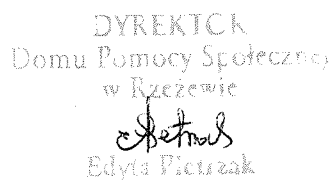 DYREKTOR
Domu Pomocy Społecznej
w Rzeżewie
Edyta Pietrzak